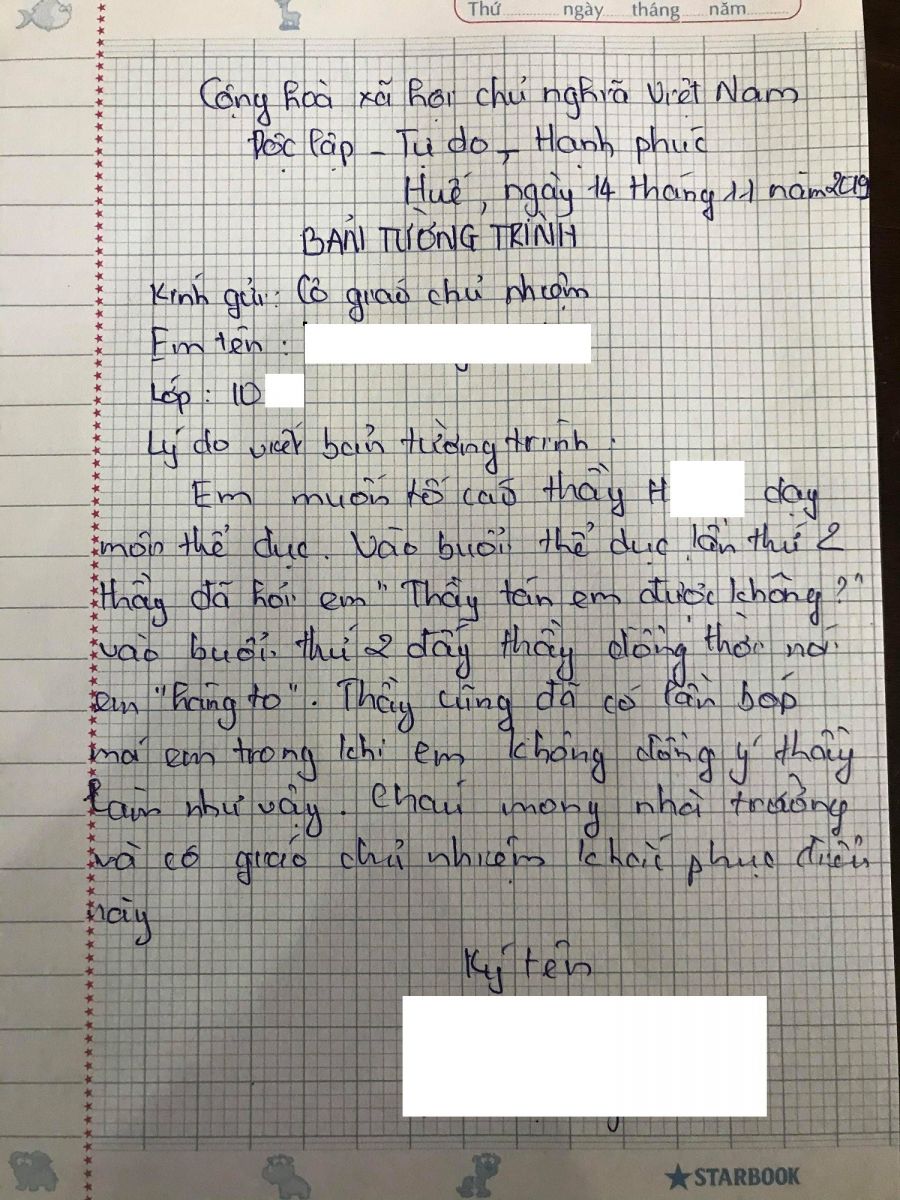 Thứ ngày tháng năm
Cộng hoà xã hội chủ nghĩa Việt Nam
Độc lập - Tự do - Hạnh phúc
Huế, ngày 14 tháng 11 năm 2019
BẢN TƯỜNG TRÌNH
Kính gửi: Cô giáo chủ nhiệm
Em tên :
Lớp : 10
Lý do viết bản tường trình :
Em muốn tố cáo thầy H dạy
môn thể dục. Vào buổi thể dục lần thứ 2
thầy đã hỏi em "Thầy tán em được không?"
vào buổi thứ 2 đấy thầy đồng thời nói
em "hàng to". Thầy cũng đã có lần bóp
má em trong khi em không đồng ý thầy
làm như vậy. Cháu mong nhà trường
và cô giáo chủ nhiệm khắc phục điều
này
Ký tên
STARBOOK